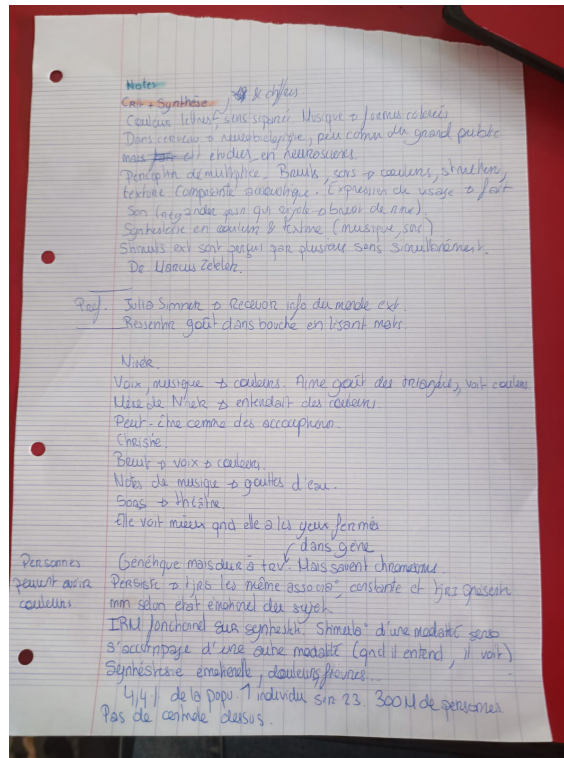 Notes
CRT + Synthèse, & chiffres
Couleur lettres, sens séparés Musique → formes colorées
Dans cerveau → neurobiologique, peu connu du grand public
mais est étudiés en neurosciences.
Perception démultiplice. Bruits, sons → couleurs, structure,
texture composante acoustique. Expression du visage → fait
son (regarder pain qui → bruit de)
Synthésie en couleur & texture (musique, son)
Stimulis ext sont perçu par plusieurs sens simultanément.
De Marcus Zebeler.
Prof. Julia Simner → Recevoir info du monde ext.
Ressentir goût dans bouche en lisant mots.
Voix, musique → couleurs. Aime goût des triangles, voit couleurs
Mère de → entendait des couleurs.
Peut-être comme des acouphène.
Christine.
Bruit → voix → couleurs.
Notes de musique → gouttes d'eau.
Sons → théâtre
Elle voit mieux qnd elle a les yeux fermés
dans gène
Personnes Génétique mais dure à trv. Mais savent chromosome.
peuvent avoir Persiste → tjrs les même associa°, constante et tjrs présent
couleurs mm selon état émotionel du sujet.
IRM fonctionel sur synhesth. Stimula° d'une modalité senso
s'accompage d'une autre modalité (qnd il entend, il voit)
Synésthésie émotionelle, douleurs,
4,4% de la popu. 1 individu sur 23. 300M de personnes
Pas de contrôle dessus.